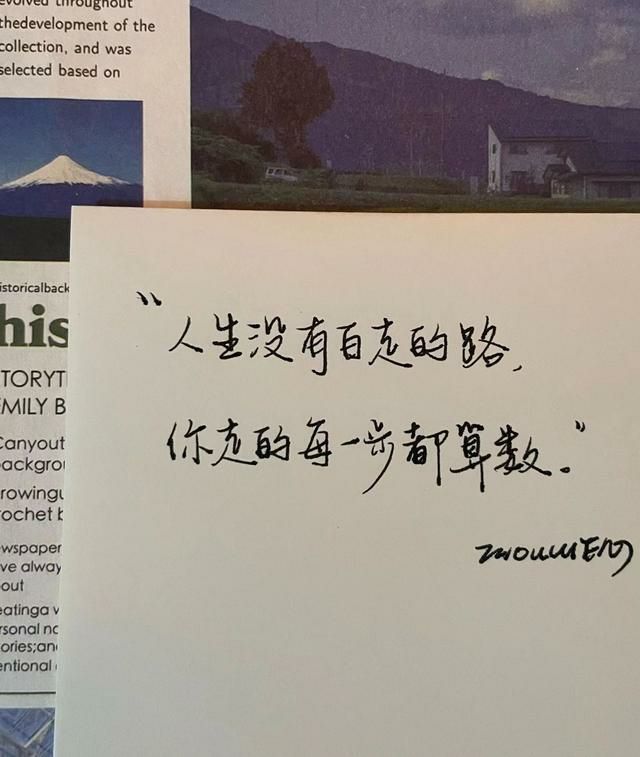 evolved throughout
thedevelopment of the
collection, and was
selected based on
istoricalback
his
TORYT
EMILY B
Canyout
backgrou
rowingu
rochet b
wspaper
ve alway
out
eatinga w
rsonal no
ories;and
entional
“人生没有白走的路，
你走的每一步都算数。”